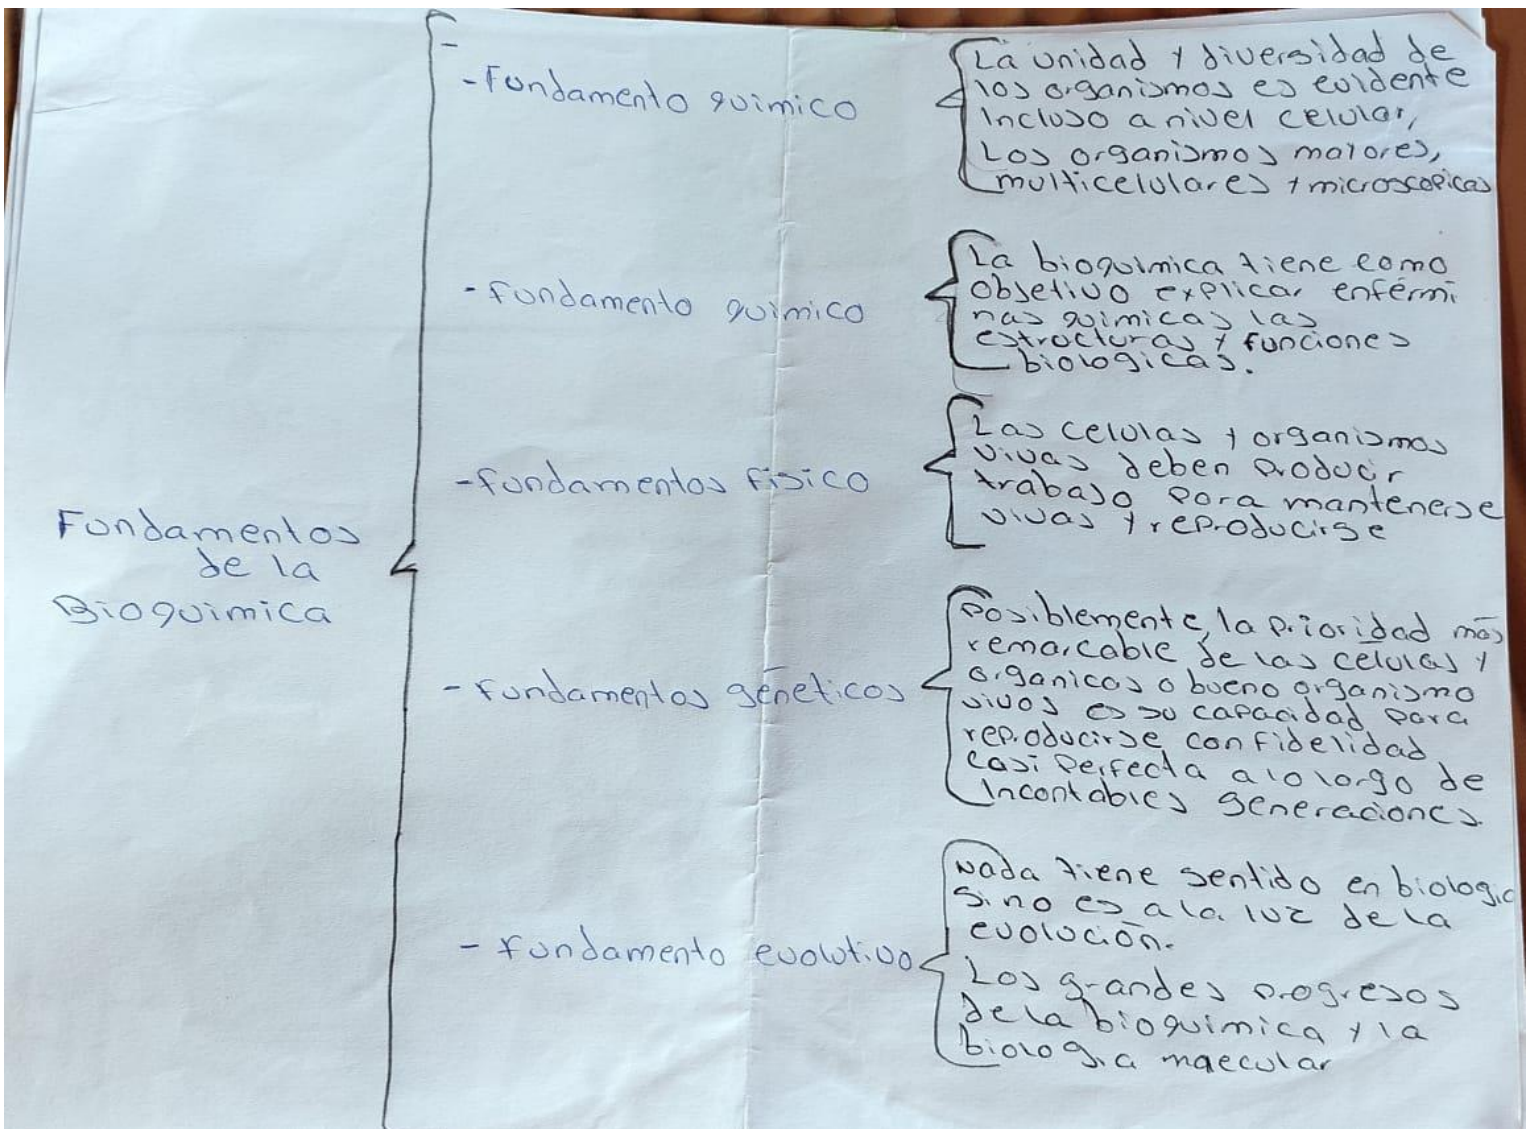 Fundamentos
de la
Bioquimica
-
- Fundamento quimico
La unidad y diversidad de
los organismos es evidente
Incluso a nivel celular,
Los organismos mayores,
multicelulares y microscopicas
- Fundamento quimico
La bioquimica tiene como
objetivo explicar entérmi
nas quimicas las
estructuras y funciones
biologicas.
- Fundamentos Fisico
Las celulas y organismos
vivas deben producir
trabajo para mantenerse
vivas y reproducirse
- Fundamentos géneticos
Posiblemente, la prioridad más
remarcable de las células y
organicos o bueno organismo
vivos es su capacidad para
reproducirse con fidelidad
casi perfecta a lo largo de
Incontables generaciones.
- Fundamento evolutivo
Nada tiene sentido en biologia
sino es a la luz de la
evolución.
Los grandes progresos
de la bioquimica y la
biologia maecular